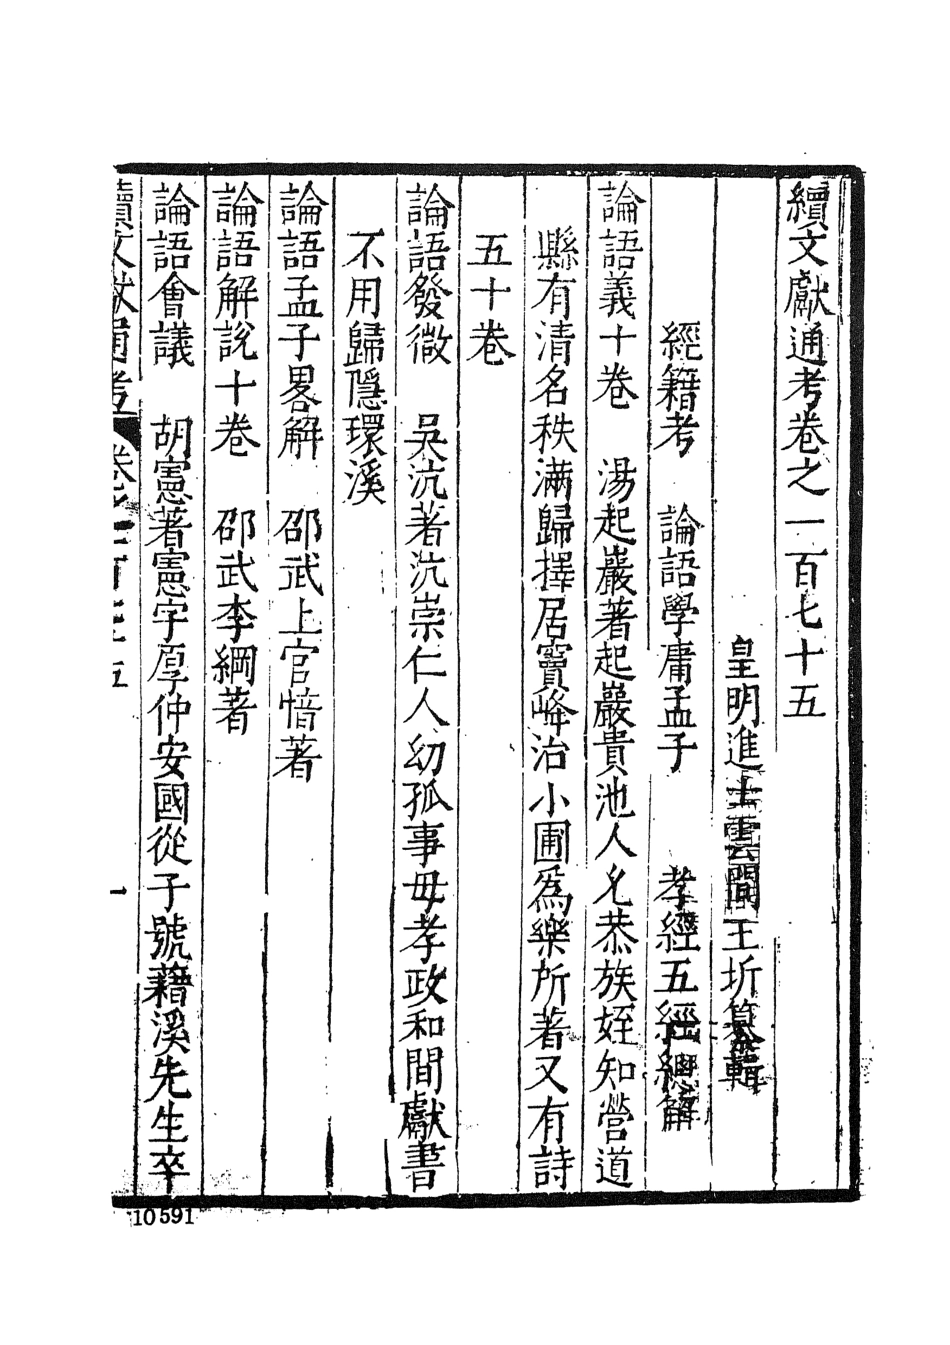 續文獻通考卷之一百七十五
皇明進士雲間王圻纂輯
經籍考　論語學庸孟子　孝經五經總解
論語義十卷　湯起巖著起巖貴池人允恭族姪知營道
縣有清名秩滿歸擇居竇峰治小圃爲樂所著又有詩
五十卷
論語發微　吳沆著沆崇仁人幼孤事毋孝政和間獻書
不用歸隱環溪
論語孟子畧解　邵武上官愔著
論語解說十卷　邵武李綱著
論語會議　胡憲著憲字厚仲安國從子號籍溪先生卒
續文獻通考　卷一百七十五　一
10591